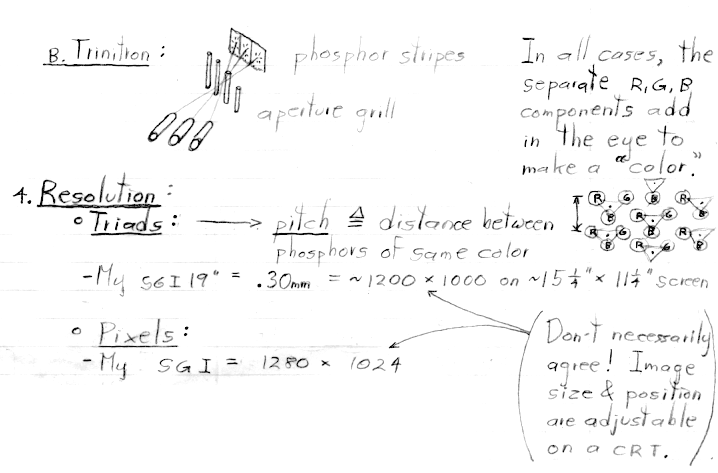 B. Trinitron :
phosphor stripes
aperture grill
In all cases, the
separate R, G, B
components add
in the eye to
make a "color."
4. Resolution :
° Triads : → pitch ≜ distance between
phosphors of same color
R G R
B G B
R G R
B G B
- My SGI 19" = .30mm = ~1200 × 1000 on ~15 1/4" × 11 1/4" screen
° Pixels :
- My SGI = 1280 × 1024
(Don't necessarily
agree! Image
size & position
are adjustable
on a CRT.)